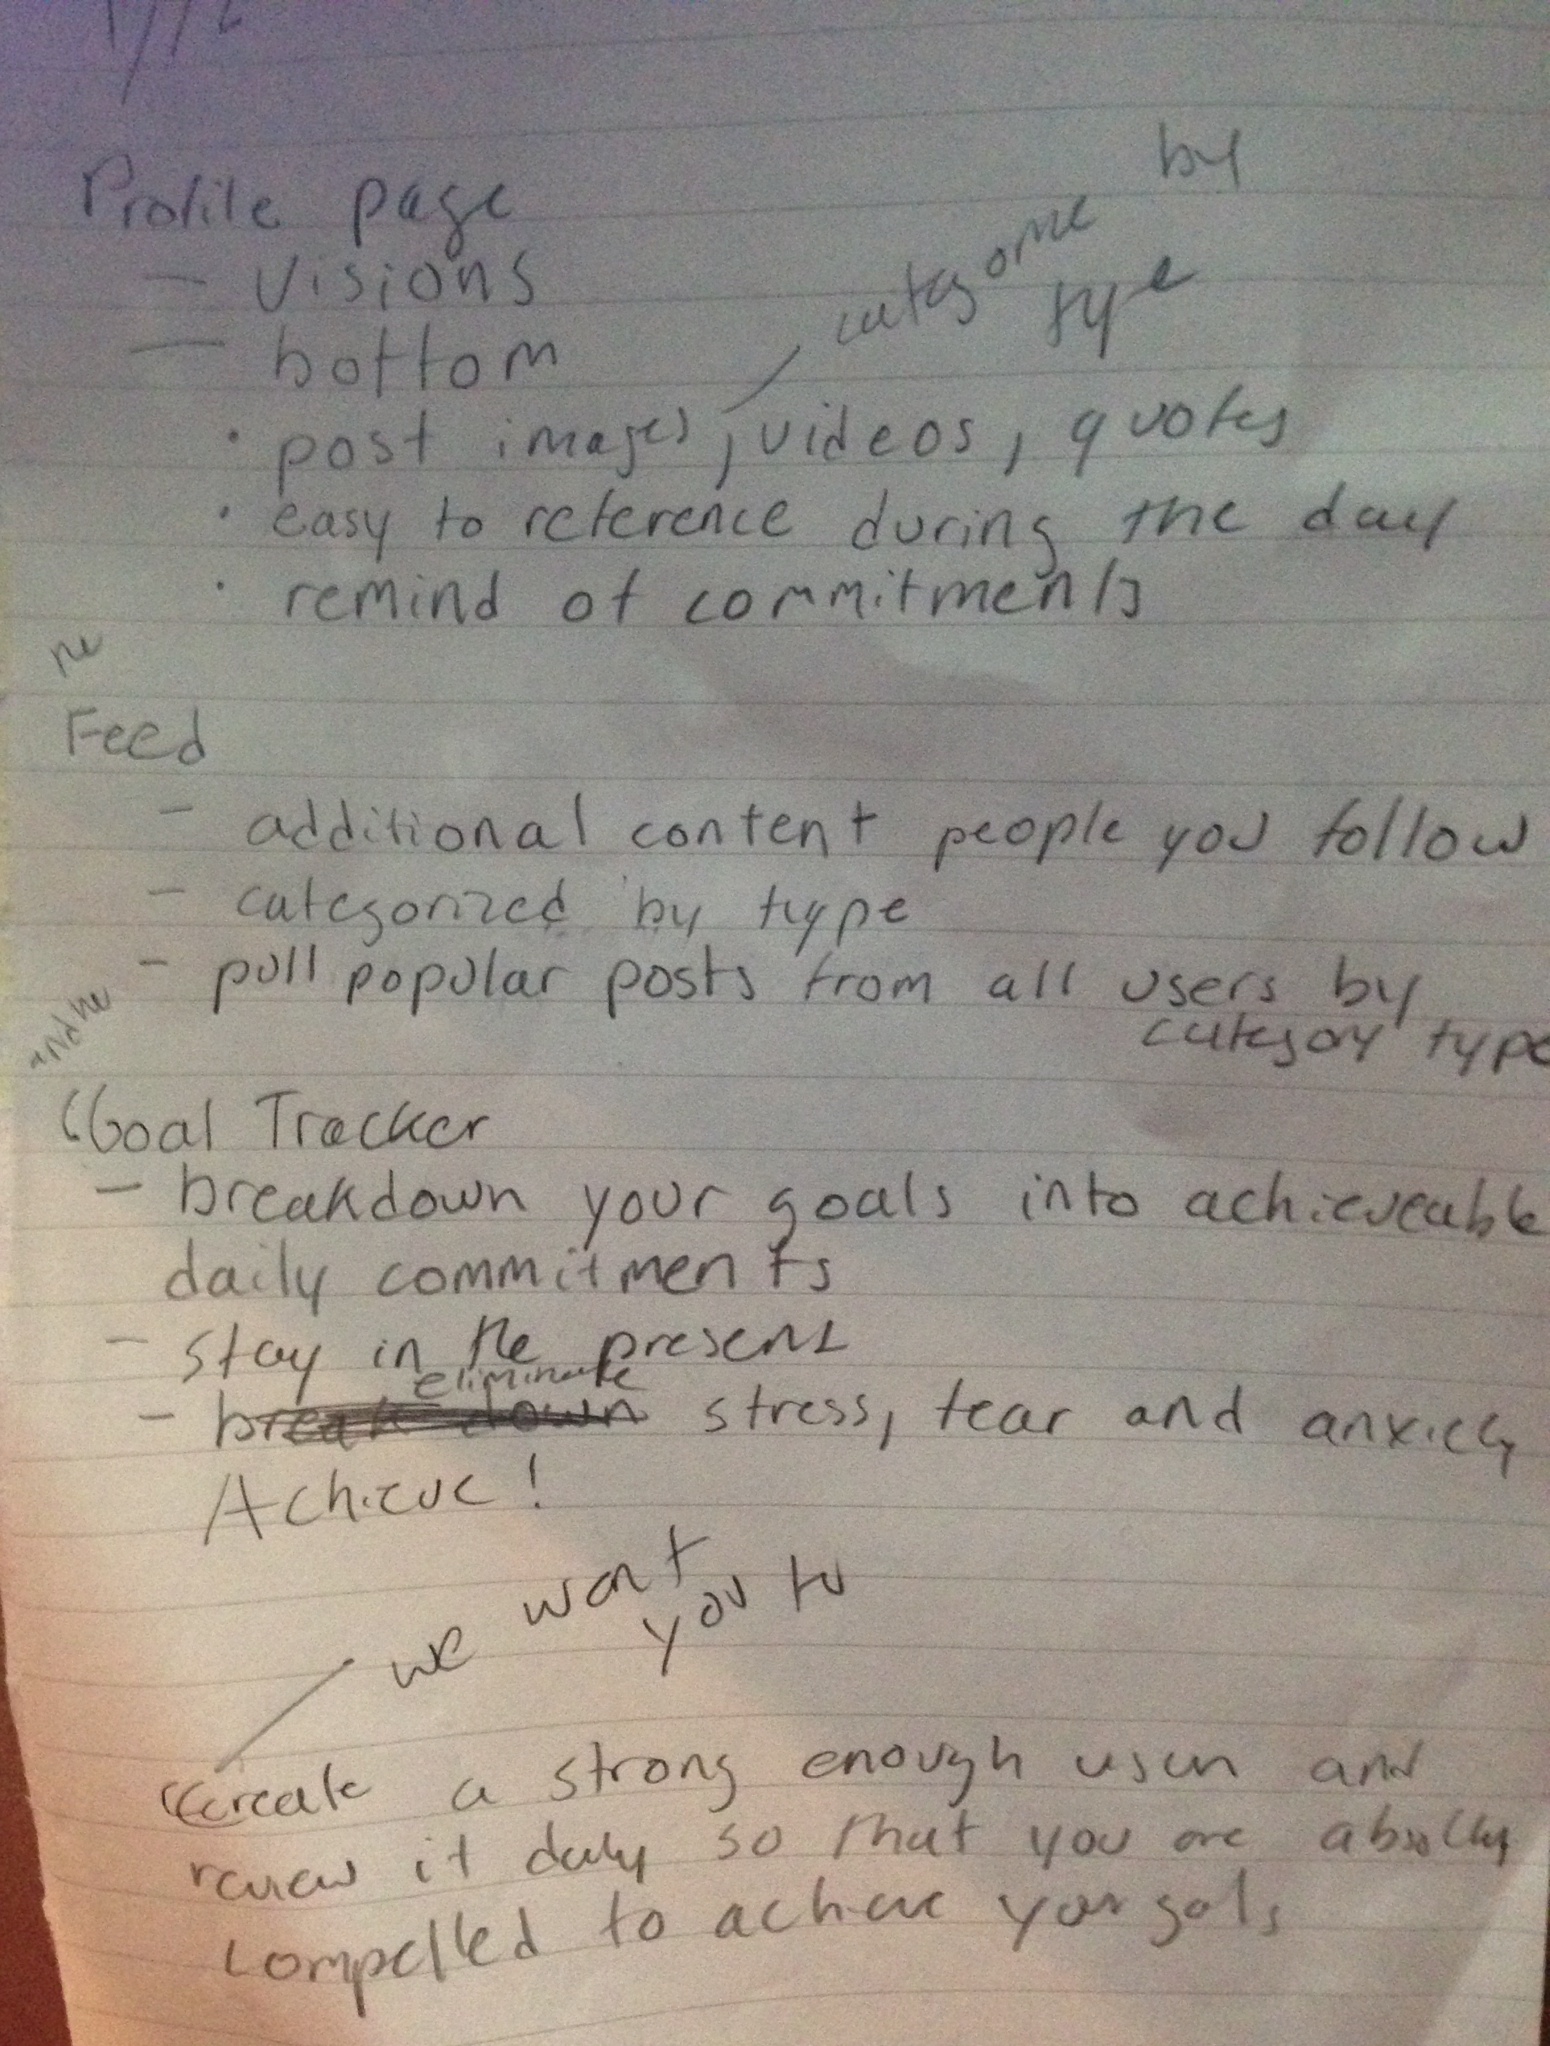 Profile page
- visions
- bottom
categorize by
type
· post images, videos, quotes
· easy to reference during the day
· remind of commitments
the
Feed
- additional content people you follow
- categorized by type
- pull popular posts from all users by
category type
and the
Goal Tracker
- breakdown your goals into achieveable
daily commitments
- stay in the present
eliminate
- break down stress, fear and anxiety
Achieve!
we want
you to
create a strong enough vision and
review it daily so that you are absolutely
compelled to achieve your goals